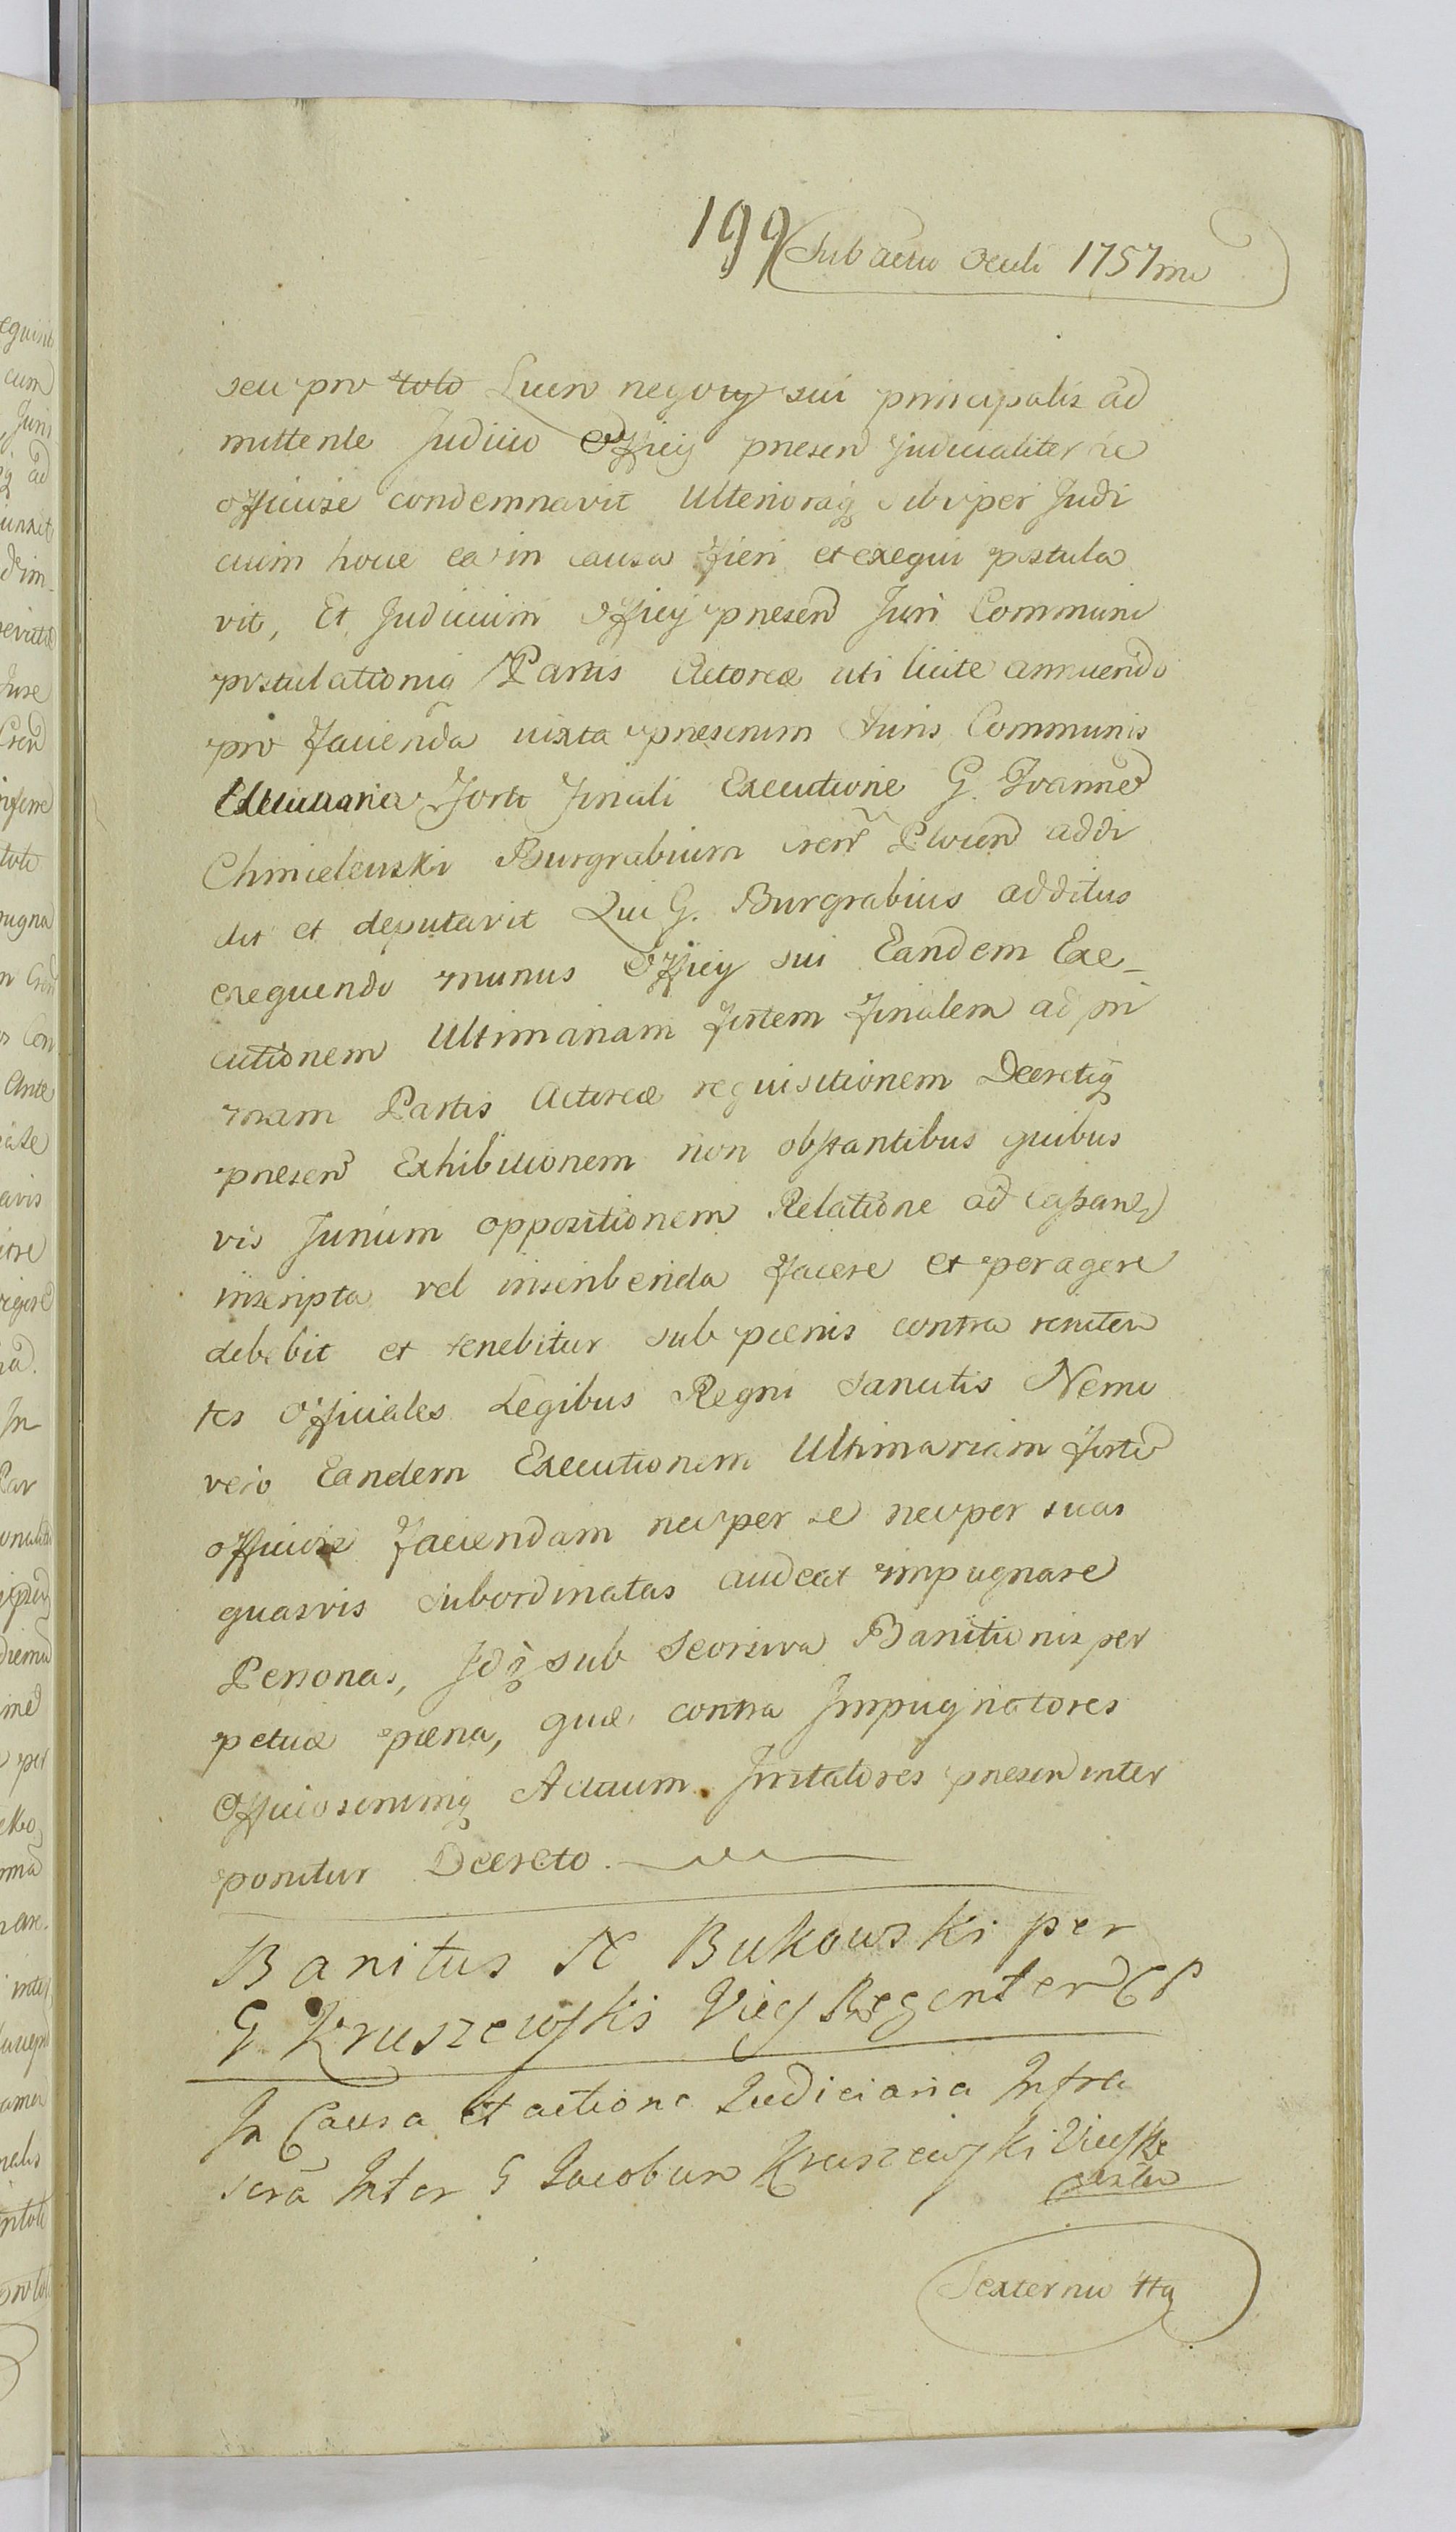 199
Sub actu Oculi 1757mo
seu pro toto Lucro negotij sui principalis ad
mittente Judicio Officij presen Judicialiter ac
officiose condemnavit Ulterioraq sibi per Judi
cium hocce ea in causa fieri et exequi postula
vit, Et Judicium Officij presen Juri Communi
postulationiq Partis Actoreæ uti licite annuendo
pro facienda iuxta presenum Juris Communis
Ultimaria Forti Finali Executione G. Joannē
Chmielewski Burgrabium Plocen addi
dit et deputavit Qui G. Burgrabius additus
exequendo munus Officij sui Eandem Exe-
cutionem Ultimariam fortem finalem ad pri
mam Partis Actoreæ requisitionem Decretiq
presen Exhibitionem non obstantibus quibus
vis Jurium oppositionem Relatione ad
inscripta vel inscribenda facere et peragere
debebit et tenebitur sub pœnis contra reniten
tes Officiales Legibus Regni sancitis Nemo
vero Eandem Executionem Ultimariam forte
officiose faciendam nec per se nec per suas
quasvis subordinatas audeat impugnare
Personas, Idq sub seorsiva Banitionis per
petuæ pœna, quæ contra Impugnatores
Officiosorumq Actuum Irritatores presen inter
ponitur Decreto.
Banitus N Bukowski per
G Kruszewski Vices Regenten CP
In Causa et actione Judiciaria Infra
scrā Inter G Jacobum Kruszewski Vices Re
genten
Sexternio tta